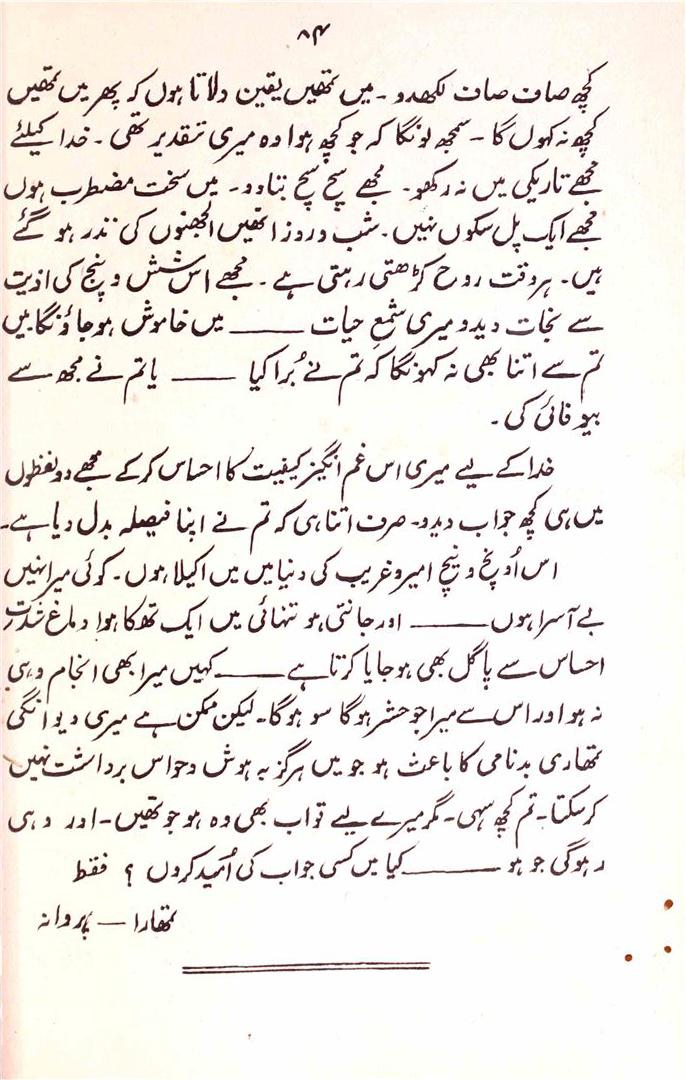 ۸۴
کچھ صاف صاف لکھدو۔ میں تمھیں یقین دلاتا ہوں کہ پھر میں تمھیں
کچھ نہ کہوں گا۔ سمجھ لونگا کہ جو کچھ ہوا وہ میری تقدیر تھی۔ خدا کیلئے
مجھے تاریکی میں نہ رکھو۔ مجھے سچ سچ بتا دو۔ میں سخت مضطرب ہوں
مجھے ایک پل سکوں نہیں۔ شب و روز انھیں الجھنوں کی نذر ہو گئے
ہیں۔ ہر وقت روح کڑھتی رہتی ہے۔ مجھے اس شش و پنج کی اذیت
سے نجات دیدو میری شمعِ حیات ـــــــ میں خاموش ہو جاؤنگا میں
تم سے اتنا بھی نہ کہونگا کہ تم نے بُرا کیا ـــــــ یا تم نے مجھ سے
بیوفائی کی۔
خدا کے لیے میری اس غم انگیز کیفیت کا احساس کر کے مجھے دو لفظوں
میں ہی کچھ جواب دیدو۔ صرف اتنا ہی کہ تم نے اپنا فیصلہ بدل دیا ہے۔
اس اُونچ و نیچ امیر و غریب کی دنیا میں میں اکیلا ہوں۔ کوئی میرا نہیں
بے آسرا ہوں ـــــــ اور جانتی ہو تنہائی میں ایک تھکا ہوا دماغ شدت
احساس سے پاگل بھی ہو جایا کرتا ہے ـــــــ کہیں میرا بھی انجام وہی
نہ ہو اور اس سے میرا جو حشر ہوگا سو ہوگا۔ لیکن ممکن ہے میری دیوانگی
تمھاری بدنامی کا باعث ہو جو میں ہرگز بہ ہوش و حواس برداشت نہیں
کر سکتا۔ تم کچھ سہی۔ مگر میرے لیے تو اب بھی وہ ہو جو تھیں۔ اور وہی
رہوگی جو ہو ـــــــ کیا میں کسی جواب کی اُمید کروں ؟ فقط
تمھارا — پروانہ